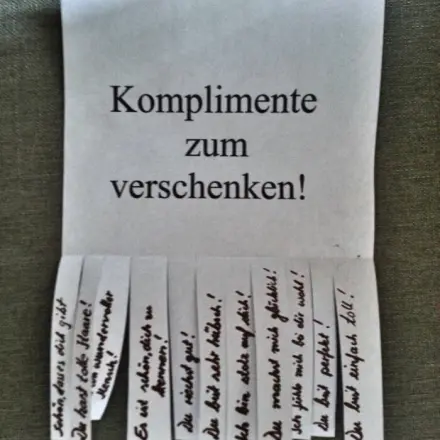 Komplimente
zum
verschenken!
Schön, dass es dich gibt
Du hast tolle Haare!
ein wundervoller
Mensch!
Es ist schön, dich zu
kennen!
Du riechst gut!
Du bist sehr hübsch!
Ich bin stolz auf dich!
Du machst mich glücklich!
Ich fühl mich bei dir wohl!
Du bist perfekt!
Du bist einfach toll!